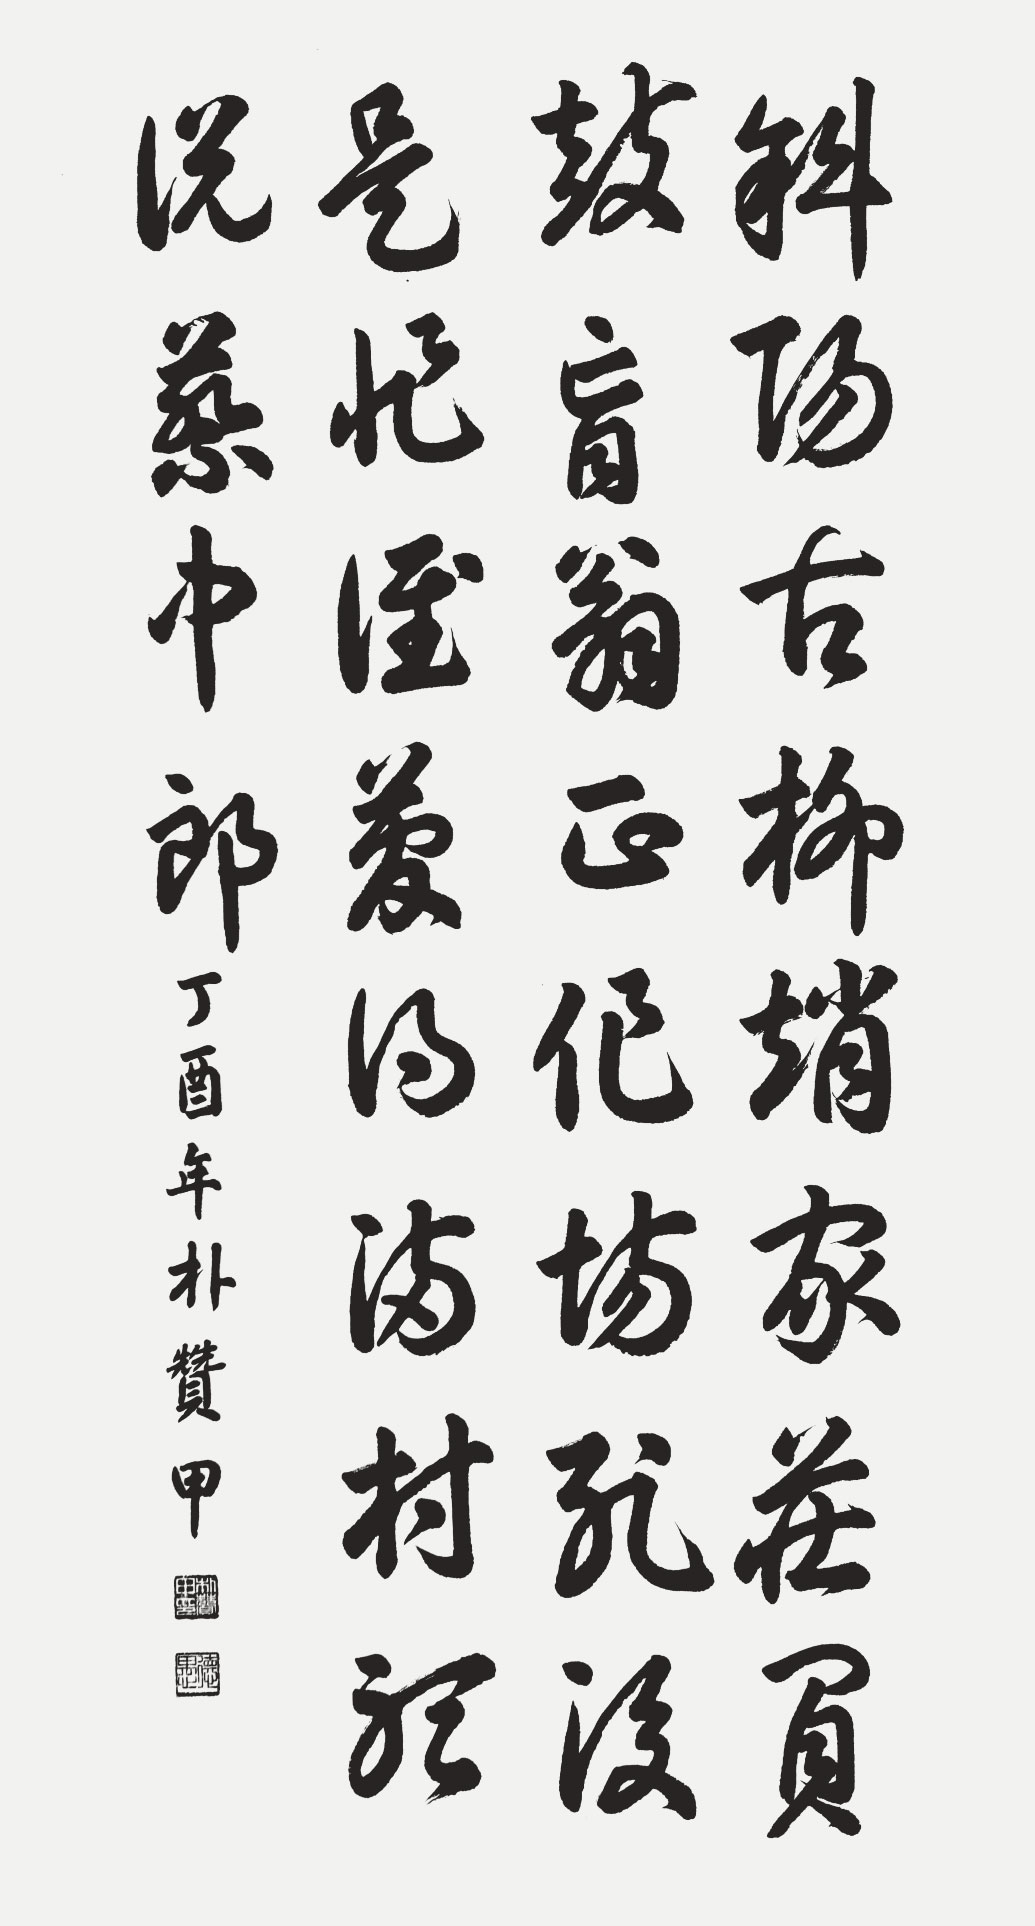 斜陽古柳趙家莊負
鼓盲翁正作場死後
是非誰管得滿村聽
說蔡中郎 丁酉年 朴贊甲